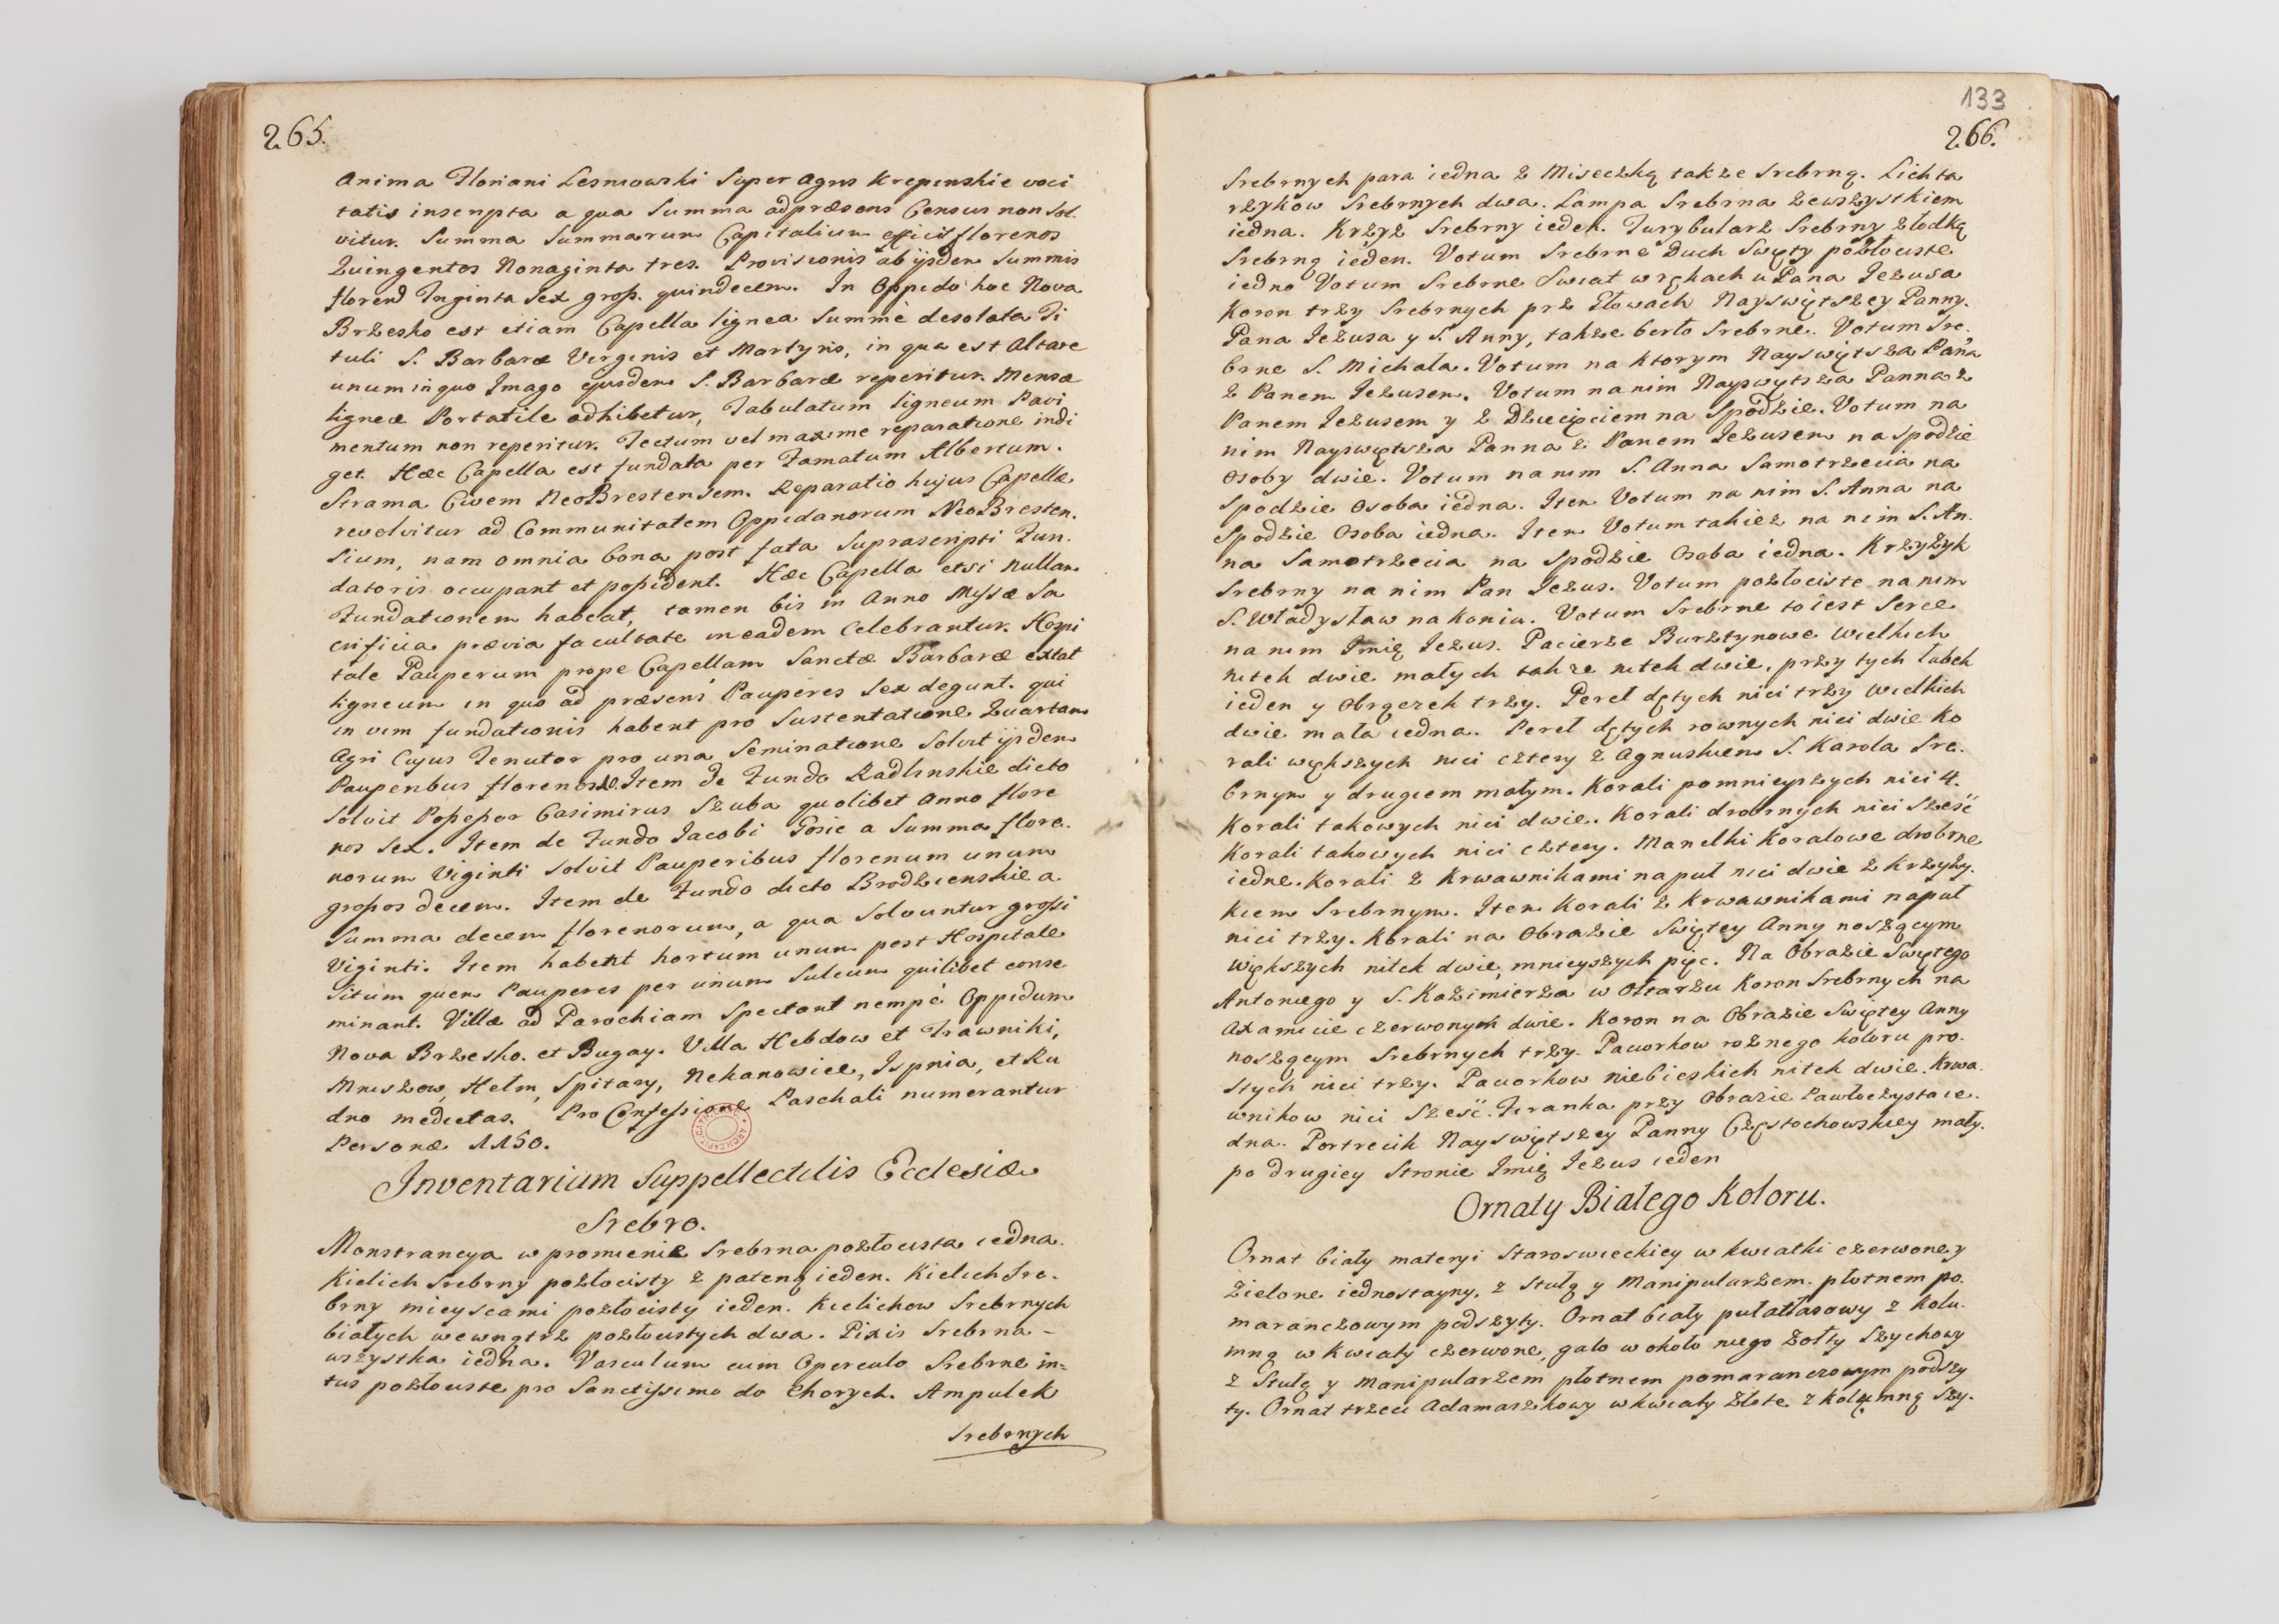 265.
Anima Floriani Lesniowski super agros Krepenskie voci
tatis inscripta a qua summa adpræsens Census non sol-
vitur. Summa Summarum Capitalium efficit florenos
Quingentos Nonaginta tres. Provisionis ab ijsdem Summis
floren Triginta sex gross. quindecem. In Oppido hoc Nova
Brzesko est etiam Capella lignea summè desolata Ti
tuli S. Barbaræ Virginis et Martyris, in qua est Altare
unum in quo Imago ejusdem S. Barbaræ reperitur. Mensæ
ligneæ Portatile adhibetur, Tabulatum ligneum Pavi
mentum non reperitur. Tectum vel maxime reparatione indi
get. Hæc Capella est fundata per Famatum Albertum.
Strama Civem NeoBrestensem. Reparatio hujus Capellæ
revolvitur ad Communitatem Oppidanorum NeoBresten.
sium, nam omnia bona post fata suprascripti Fun.
datoris occupant et possident. Hæc Capella etsi nullam
Fundationem habeat, tamen bis in Anno Missæ Sa
crificia prævia facultate in eadem Celebrantur. Hospi
tale Pauperum prope Capellam Sanctæ Barbaræ extat
ligneum in quo ad præsens Pauperes sex degunt. qui
in vim fundationis habent pro sustentatione Quartam
Agri Cujus Tenutor pro una seminatione solvit ijsdem
Pauperibus florenos 10. Item de Fundo Radlinskie dicto
solvit Possessor Casimirus Szuba quolibet Anno flore
nos sex. Item de Fundo Jacobi Gosic a Summa flore.
norum Viginti solvit Pauperibus florenum unum
grossos decem. Item de Fundo dicto Brodzienskie a
summa decem florenorum, a qua solvuntur grossi
Viginti. Item habent hortum unum post Hospitale
situm quem Pauperes per unum sulcum quilibet conse
minant. Villæ ad Parochiam spectant nempè Oppidum
Nova Brzesko. et Bugay. Villa Hebdow et Trawniki,
Mniszow, Hełm, Spitary, Nekanowice, Ispnia, et Ru
dno medietas. Pro Confessione Paschali numerantur
Personæ 1150.
Inventarium Suppellectilis Ecclesiæ
Srebro.
Monstrancya w promienie srebrna pozłocista iedna.
Kielich srebrny pozłocisty z pateną ieden. Kielich Sre.
brny mieyscami pozłocisty ieden. Kielichow srebrnych
białych wewngtrz pozłocistych dwa. Pixis srebrna -
wszystka iedna. Vasculum cum Operculo srebrne in=
tus pozłociste pro Sanctissimo do Chorych. Ampulek
srebrnych
133
266.
srebrnych para iedna z Miseczką takze srebrną. Lichta
rzykow srebrnych dwa. Lampa srebrna zewszystkiem
iedna. Krzyz srebrny ieden. Turybularz srebrny złodką
srebrną ieden. Votum srebrne Duch Swięty pozłociste
iedno Votum srebrne Swiat w rękach u Pana Jezusa
Koron trzy srebrnych prz Głowach Nayswiętszey Panny.
Pana Jezusa y S. Anny, takze berło srebrne. Votum Sre.
brne S. Michała. Votum na ktorym Nayswiętsza Pana
z Panem Jezusem. Votum na nim Nayswiętsza Panna z
Panem Jezusem y z Dziecięciem na spodzie. Votum na
nim Nayswiętsza Panna z Panem Jezusem na spodzie
osoby dwie. Votum na nim S. Anna samotrzecia na
spodzie osoba iedna. Item Votum na nim S. Anna na
spodzie osoba iedna. Item Votum takiez na nim S. An.
na samotrzecia na spodzie osoba iedna. Krzyzyk
srebrny na nim Pan Jezus. Votum pozłociste na nim
S. Władysław na koniu. Votum srebrne to iest serce
na nim Imię Jezus. Pacierze Bursztynowe wielkich
nitek dwie małych takze nitek dwie. przy tych łubek
ieden y obrączek trzy. Pereł dętych nici trzy wielkich
dwie mała iedna. Pereł dętych rownych nici dwie Ko
rali większych nici cztery z Agnuskiem S. Karola Sre.
brnym y drugiem małym. Korali pomnieyszych nici 4.
Korali takowych nici dwie. Korali drobnych nici szesć
Korali takowych nici cztery. Manelki Koralowe drobne
iedne. Korali z Krwawnikami na puł nici dwie z krzyzy.
kiem srebrnym. Item Korali z Krwawnikami na puł
nici trzy. Korali na Obrazie Swiętey Anny noszącym
większych nitek dwie, mnieyszych pięc. Na Obrazie Swiętego
Antoniego y S. Kazimierza w Ołtarzu Koron srebrnych na
axamicie czerwonym dwie. Koron na Obrazie Swiętey Anny
noszącym srebrnych trzy. Paciorkow roznego koloru pro.
stych nici trzy. Paciorkow niebieskich nitek dwie. Krwa.
wnikow nici szesć. Firanka przy Obrazie Pawłoczysta ie.
dna. Portrecik Nayswiętszey Panny Częstochowskiey mały.
po drugiey stronie Imię Jezus ieden
Ornaty Białego Koloru.
Ornat biały materyi staroswieckiey w kwiatki czerwone y
zielone iednostayny, z stułą y Manipularzem. płotnem po.
maranczowym podszyty. Ornat biały pułatłasowy z kolu.
mną w kwiaty czerwone, galo w około niego zołty szychowy
z stułą y Manipularzem płotnem pomaranczowym podszy
ty. Ornat trzeci Adamaszkowy w kwiaty złote z kolumną szy.